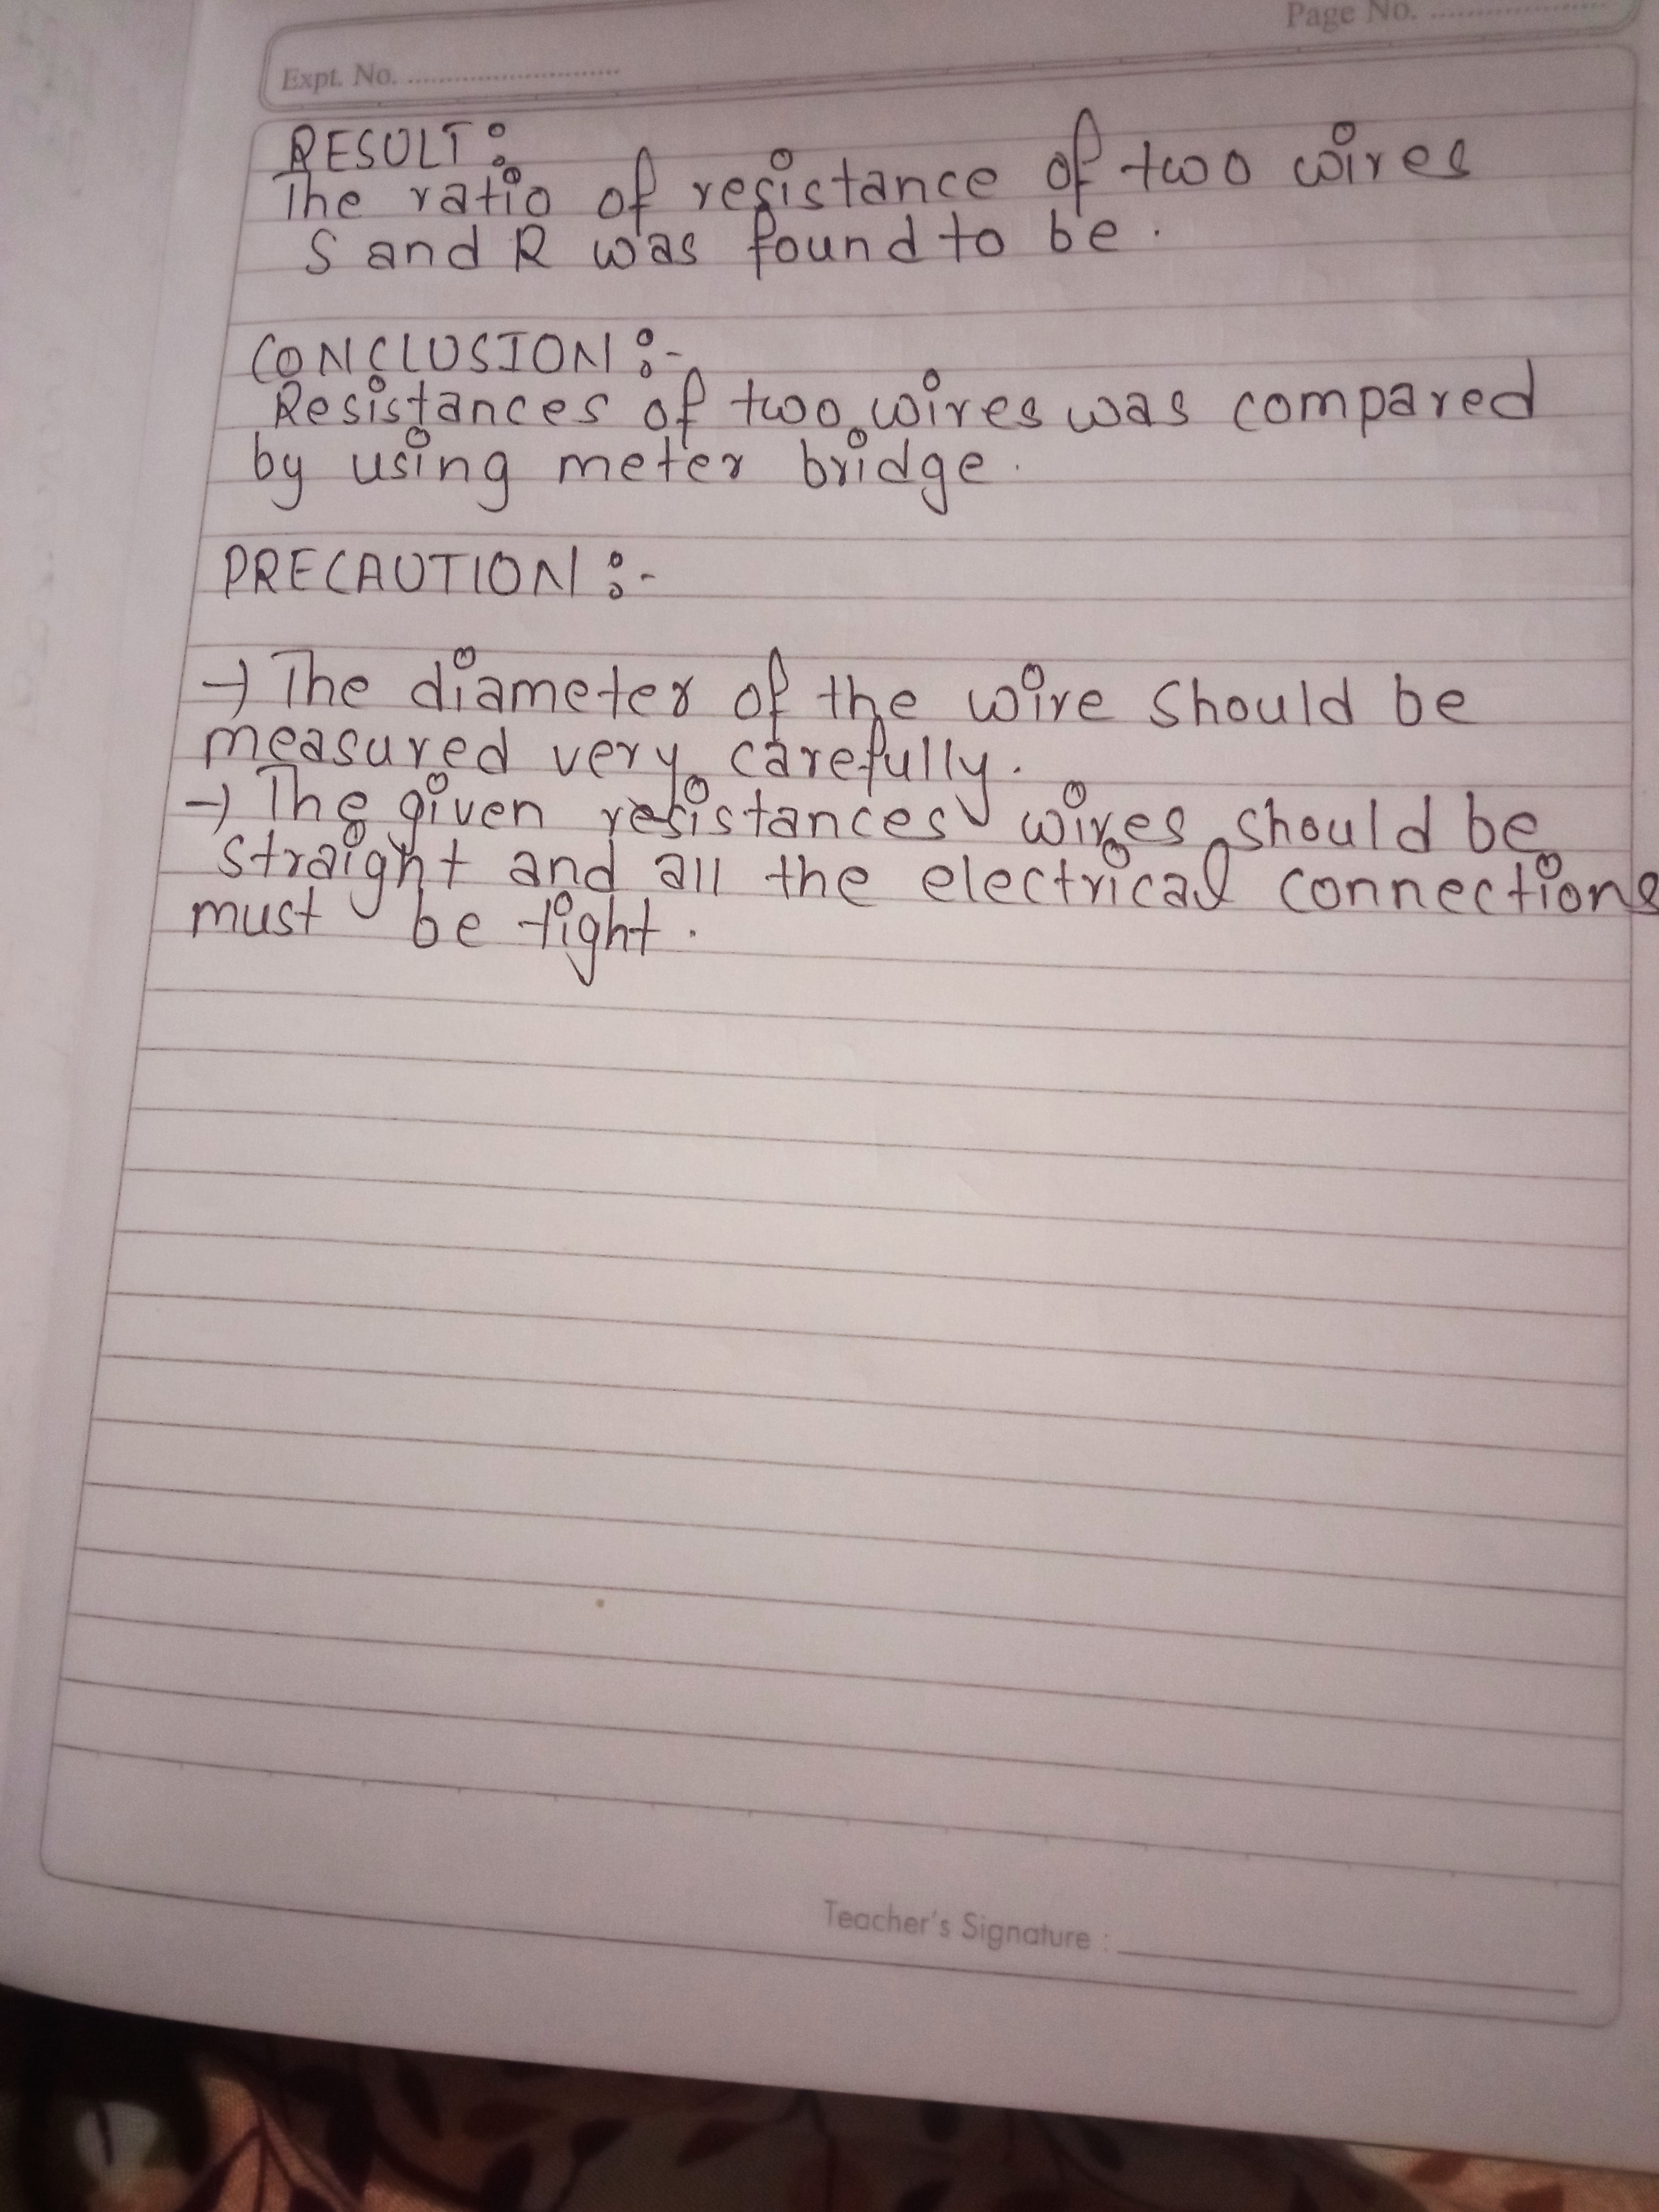 Page No. ....................
Expt. No. ..............................
RESULT :
The ratio of resistance of two wires
S and R was found to be .
CONCLUSION :-
Resistances of two wires was compared
by using meter bridge .
PRECAUTION :-
→ The diameter of the wire should be
measured very carefully .
→ The given resistances wires should be
straight and all the electrical connections
must be tight .
Teacher's Signature :